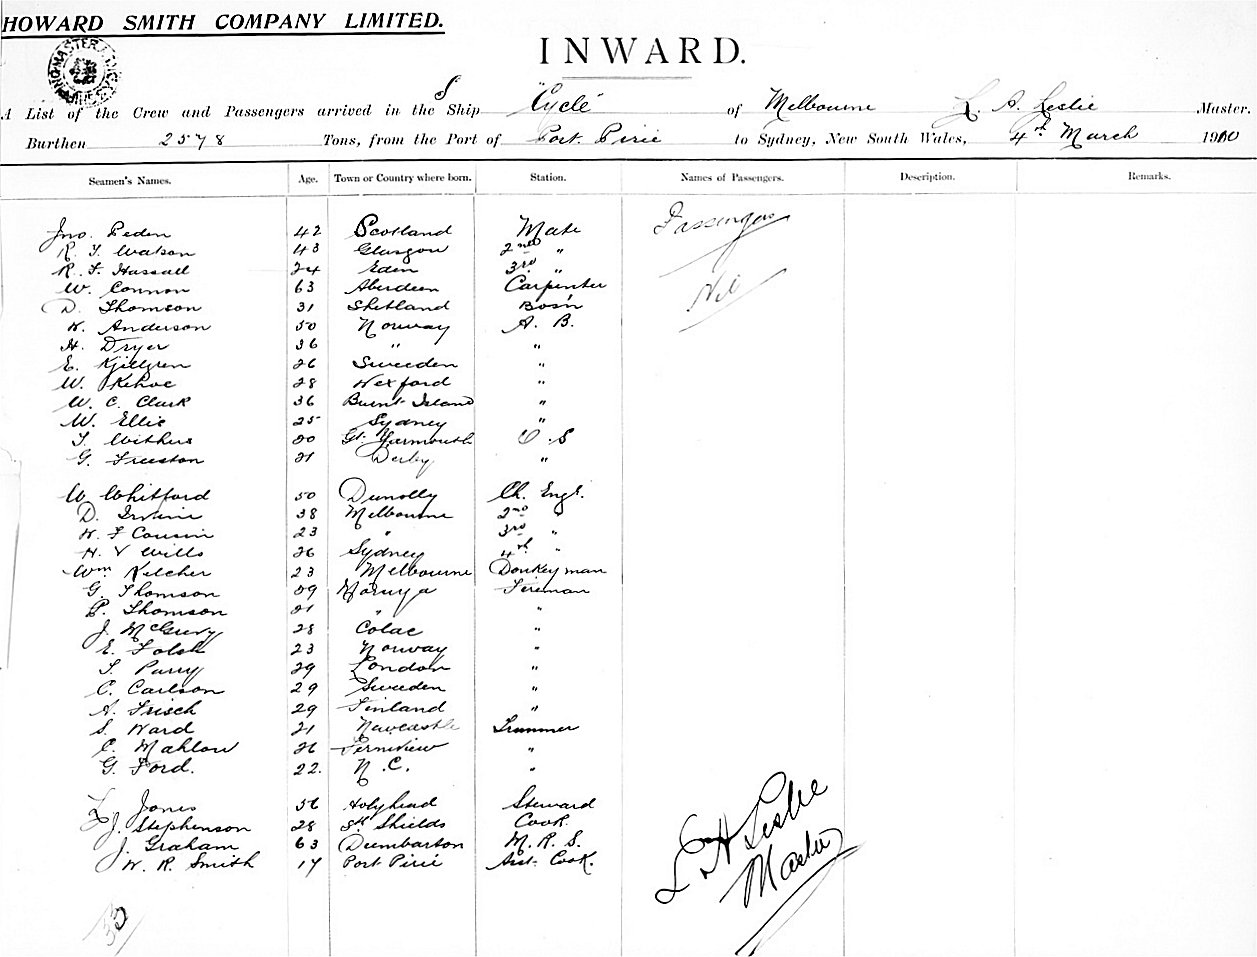 HOWARD SMITH COMPANY LIMITED.
INWARD.
A List of the Crew and Passengers arrived in the S Ship "Cycle" of Melbourne L. A. Leslie Master.
Burthen 2578 Tons, from the Port of Port Pirie to Sydney, New South Wales, 4th March 1910
Seamen's Names. Age. Town or Country where born. Station. Names of Passengers. Description. Remarks.
Jno. Peden 42 Scotland Mate Passengers
R. T. Watson 43 Glasgow 2nd "
R. F. Hassall 24 Eden 3rd "
W. Connon 63 Aberdeen Carpenter Nil
D. Thomson 31 Shetland Bos'n
K. Anderson 50 Norway A. B.
H. Dryer 36 " "
E. Kjellgren 26 Sweeden "
W. Kehoe 28 Wexford "
W. C. Clark 36 Burnt Island "
W. Ellic 25 Sydney "
T. Withers 20 Gt. Yarmouth O. S
G. Freeston 21 Derby "
W Whitford 50 Dunolly Ch. Engr.
D. Irvine 38 Melbourne 2nd "
W. F Cousin 23 " 3rd "
H. V Wills 26 Sydney 4th "
Wm Kelcher 23 Melbourne Donkeyman
G. Thomson 29 Moruya Fireman
P. Thomson 21 " "
J. McGurvy 28 Colac "
E. Folsh 23 Norway "
T. Parry 29 London "
C. Carlson 29 Sweeden "
A. Frisch 29 Finland "
S. Ward 21 Newcastle Trimmer
C. Mahlow 26 Fernview "
G. Ford. 22. N. C. "
L. Jones 56 Holyhead Steward
J. Stephenson 28 Sth Shields Cook
J. Graham 63 Dumbarton M. R. S.
W. R. Smith 17 Port Pirie Asst. Cook.
L A Leslie
Master
33